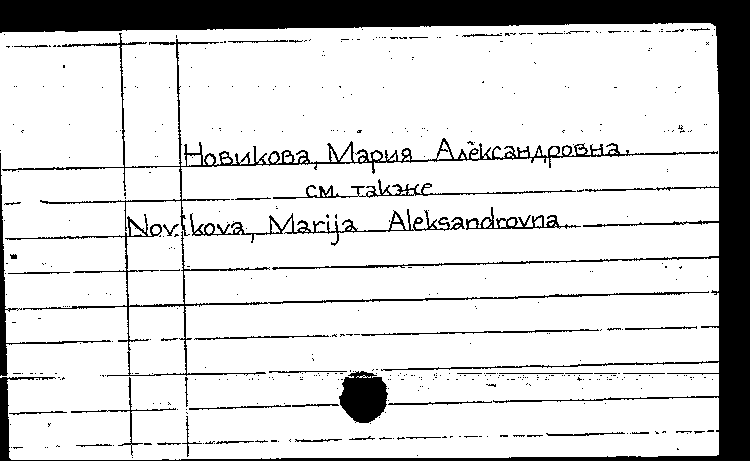 Новикова, Мария Александровна.
см. также
Novikova, Marija Aleksandrovna